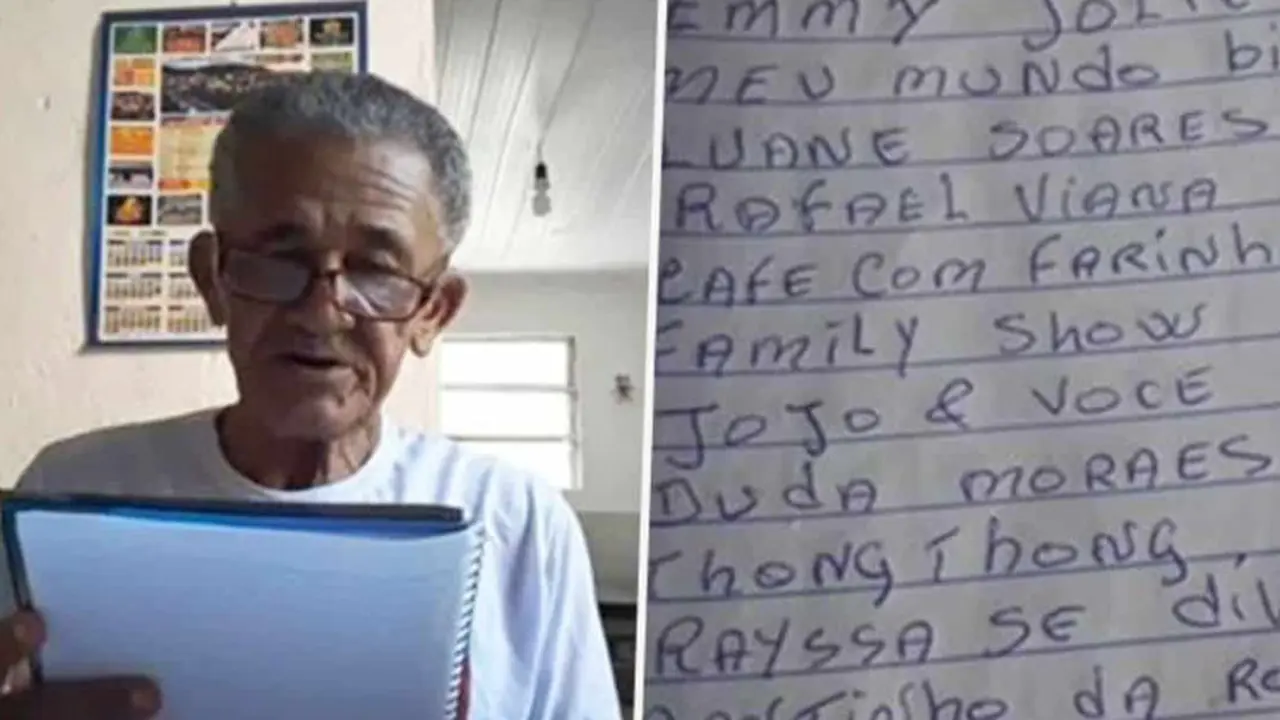 EMMY JOLIE
MEU MUNDO bi
LUANE SOARES
RAfAEL ViANA
CAfE COM FARiNh
FAMiLY Show
JoJo & VOCE
DUdA MORAES
ThONg ThONg,
RAYSSA SE diV
dA Ro